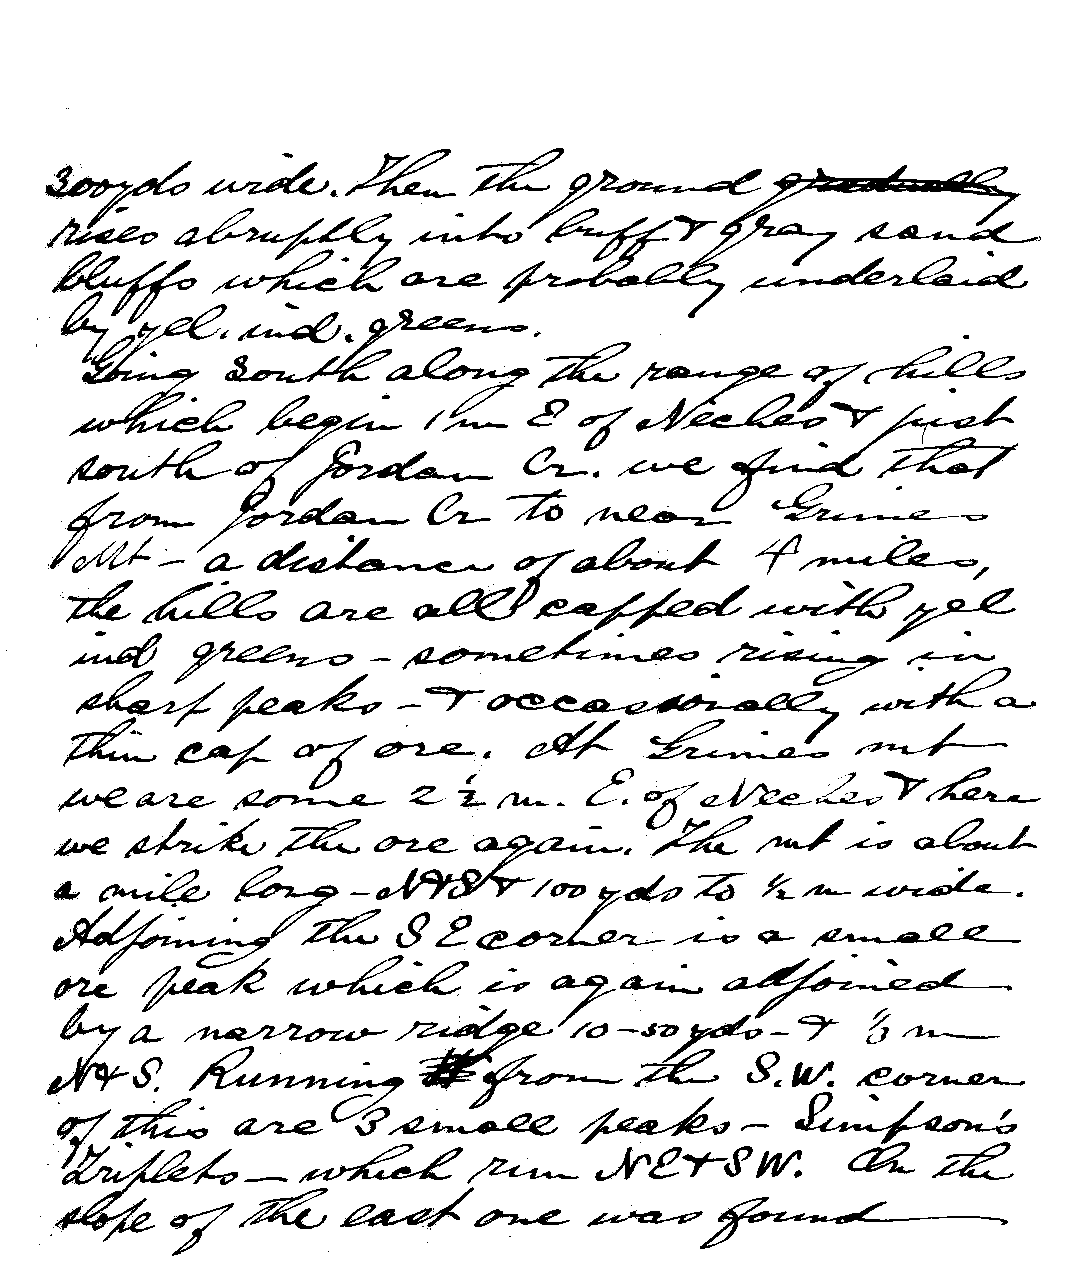 300yds wide. Then the ground gradually
rises abruptly into buff & gray sand
bluffs which are probably underlaid
by yel. ind. greens.
Going South along the range of hills
which begin 1 m E of Neches & just
south of Jordan Cr. we find that
from Jordan Cr to near Grimes
Mt – a distance of about 4 miles,
the hills are all capped with yel
ind greens – sometimes rising in
sharp peaks – & occasionally with a
thin cap of ore. At Grimes mt
we are some 2 ½ m. E. of Neches & here
we strike the ore again. The mt is about
a mile long – N & S & 100 yds to ½ m wide.
Adjoining the S E corner is a small
ore peak which is again adjoined
by a narrow ridge 10–50 yds – & ⅓ m
N & S. Running from the S.W. corner
of this are 3 small peaks – Simpson's
Triplets – which run NE & SW. On the
slope of the east one was found